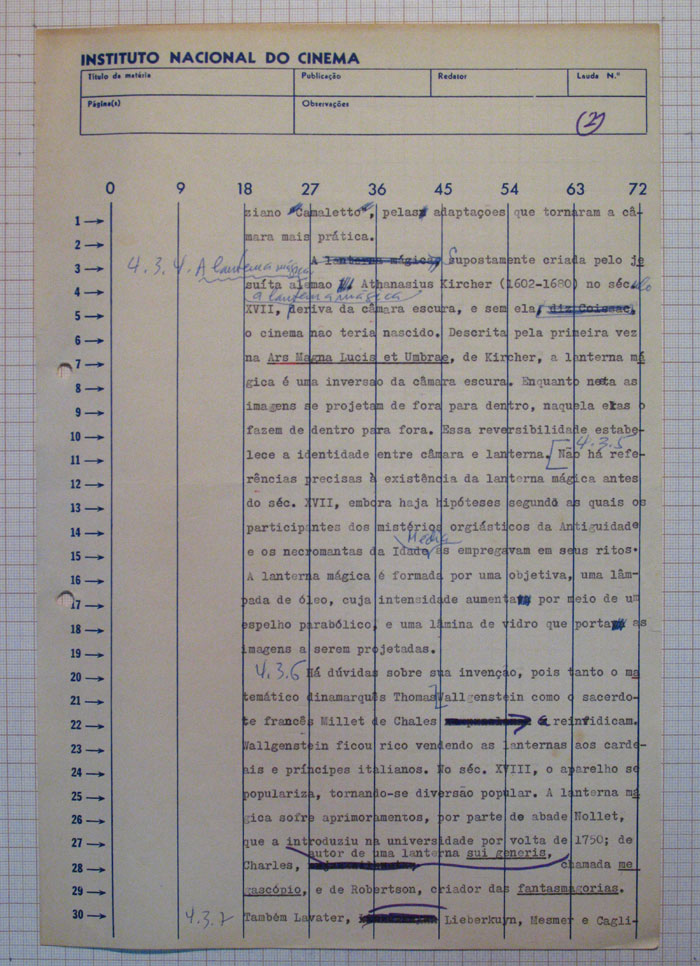 INSTITUTO NACIONAL DO CINEMA
Título da matéria Publicação Redator Lauda N.º
Página(s) Observações
(2)
0 9 18 27 36 45 54 63 72
1 ziano "Camaletto", pelas adaptações que tornaram a câ-
2 mara mais prática.
3 4.3.4. A lanterna mágica A lanterna mágica, Supostamente criada pelo je
4 suíta alemao Athanasius Kircher (1602-1680) no século
a lanterna mágica
5 XVII, deriva da câmara escura, e sem ela, diz Coissac,
6 o cinema não teria nascido. Descrita pela primeira vez
7 na Ars Magna Lucis et Umbrae, de Kircher, a lanterna má
8 gica é uma inversão da câmara escura. Enquanto nesta as
9 imagens se projetam de fora para dentro, naquela elas o
10 fazem de dentro para fora. Essa reversibilidade estabe-
4.3.5
11 lece a identidade entre câmara e lanterna. [Não há refe-
12 rências precisas à existência da lanterna mágica antes
13 do séc. XVII, embora haja hipóteses segundo as quais os
14 participantes dos mistérios orgiásticos da Antiguidade
Média
15 e os necromantas da Idade as empregavam em seus ritos.
16 A lanterna mágica é formada por uma objetiva, uma lâm-
17 pada de óleo, cuja intensidade aumenta por meio de um
18 espelho parabólico, e uma lâmina de vidro que porta as
19 imagens a serem projetadas.
20 4.3.6 Há dúvidas sobre sua invenção, pois tanto o ma
21 temático dinamarquês Thomas Wallgenstein como o sacerdo-
22 te francês Millet de Chales a reinfidicam.
23 Wallgenstein ficou rico vendendo as lanternas aos carde-
24 ais e príncipes italianos. No séc. XVIII, o aparelho se
25 populariza, tornando-se diversão popular. A lanterna má
26 gica sofre aprimoramentos, por parte do abade Nollet,
27 que a introduziu na universidade por volta de 1750; de
autor de uma lanterna sui generis,
28 Charles, chamada me
29 gascópio, e de Robertson, criador das fantasmagorias.
30 4.3.7 Também Lavater, Lieberkuyn, Mesmer e Cagli-